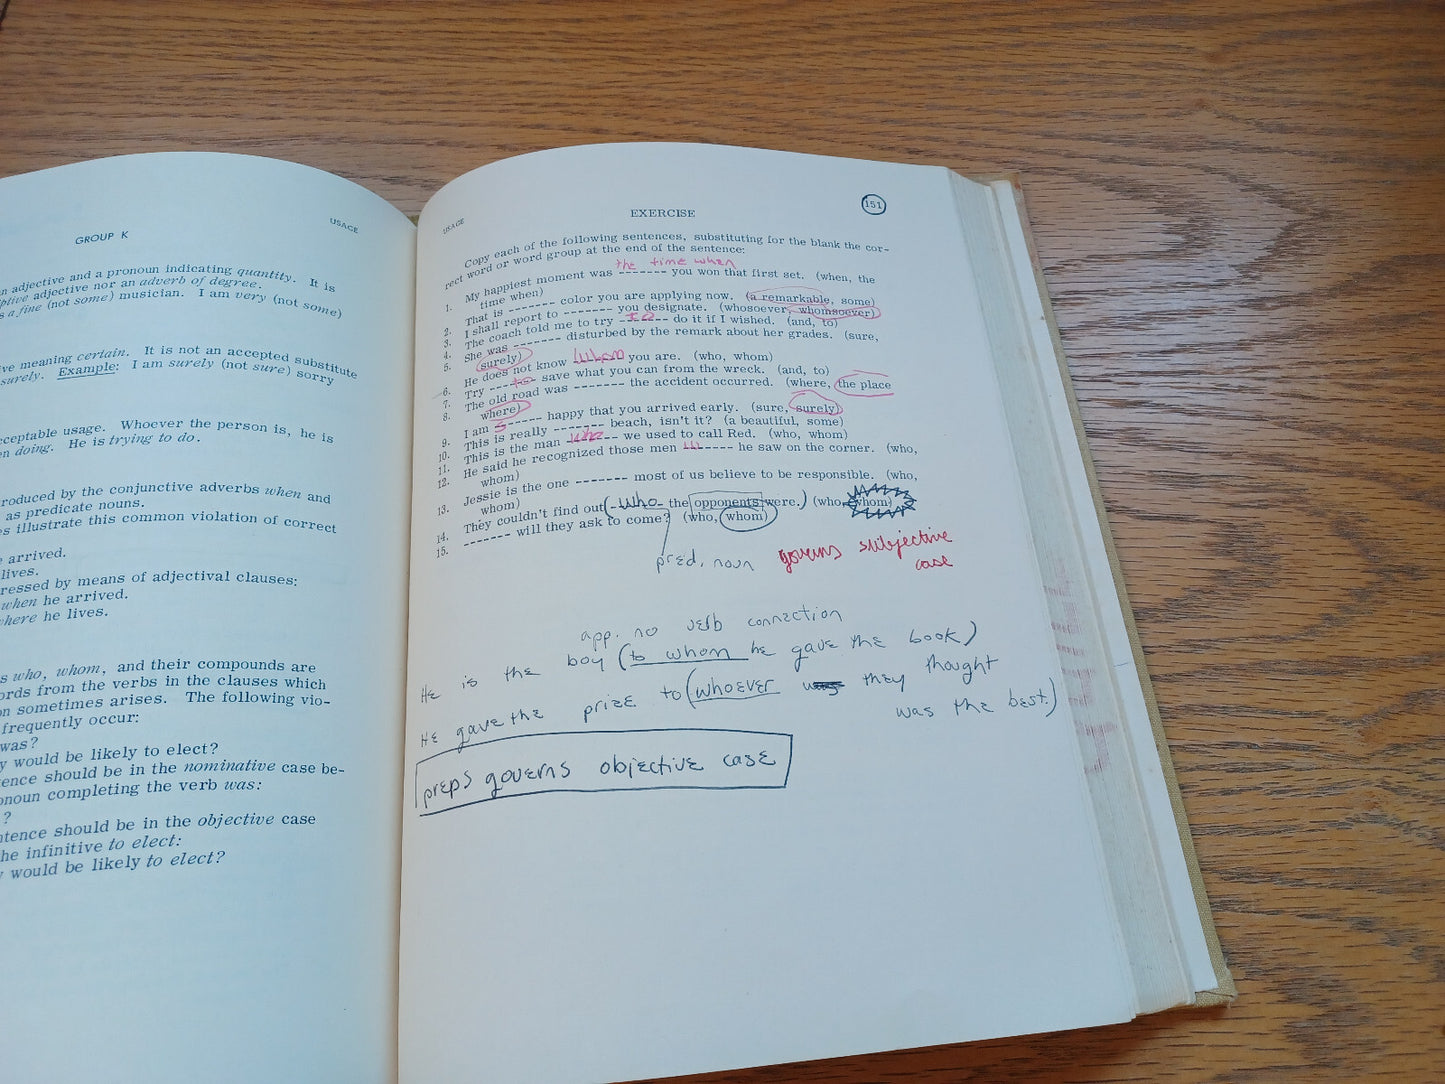 GROUP K
USAGE
n adjective and a pronoun indicating quantity. It is
ptive adjective nor an adverb of degree.
s a fine (not some) musician. I am very (not some)
ve meaning certain. It is not an accepted substitute
surely. Example: I am surely (not sure) sorry
ceptable usage. Whoever the person is, he is
en doing. He is trying to do.
roduced by the conjunctive adverbs when and
as predicate nouns.
es illustrate this common violation of correct
e arrived.
lives.
ressed by means of adjectival clauses:
when he arrived.
where he lives.
s who, whom, and their compounds are
ords from the verbs in the clauses which
on sometimes arises. The following vio-
frequently occur:
was?
y would be likely to elect?
tence should be in the nominative case be-
onoun completing the verb was:
?
ntence should be in the objective case
he infinitive to elect:
y would be likely to elect?
USAGE
EXERCISE
151
Copy each of the following sentences, substituting for the blank the cor-
rect word or word group at the end of the sentence:
the time when
1. My happiest moment was ------- you won that first set. (when, the
time when)
2. That is ------- color you are applying now. (a remarkable, some)
3. I shall report to ------- you designate. (whosoever, whomsoever)
4. The coach told me to try to do it if I wished. (and, to)
5. She was ------- disturbed by the remark about her grades. (sure,
surely)
6. He does not know whom you are. (who, whom)
7. Try to save what you can from the wreck. (and, to)
8. The old road was ------- the accident occurred. (where, the place
where)
9. I am s------ happy that you arrived early. (sure, surely)
10. This is really ------- beach, isn't it? (a beautiful, some)
11. This is the man who we used to call Red. (who, whom)
12. He said he recognized those men w----- he saw on the corner. (who,
whom)
13. Jessie is the one ------- most of us believe to be responsible. (who,
whom)
14. They couldn't find out (who the opponents were.) (who, whom)
15. ------- will they ask to come? (who, whom)
pred. noun
governs subjective
case
app. no verb connection
He is the boy (to whom he gave the book)
He gave the prize to (whoever they thought
was the best.)
preps governs objective case